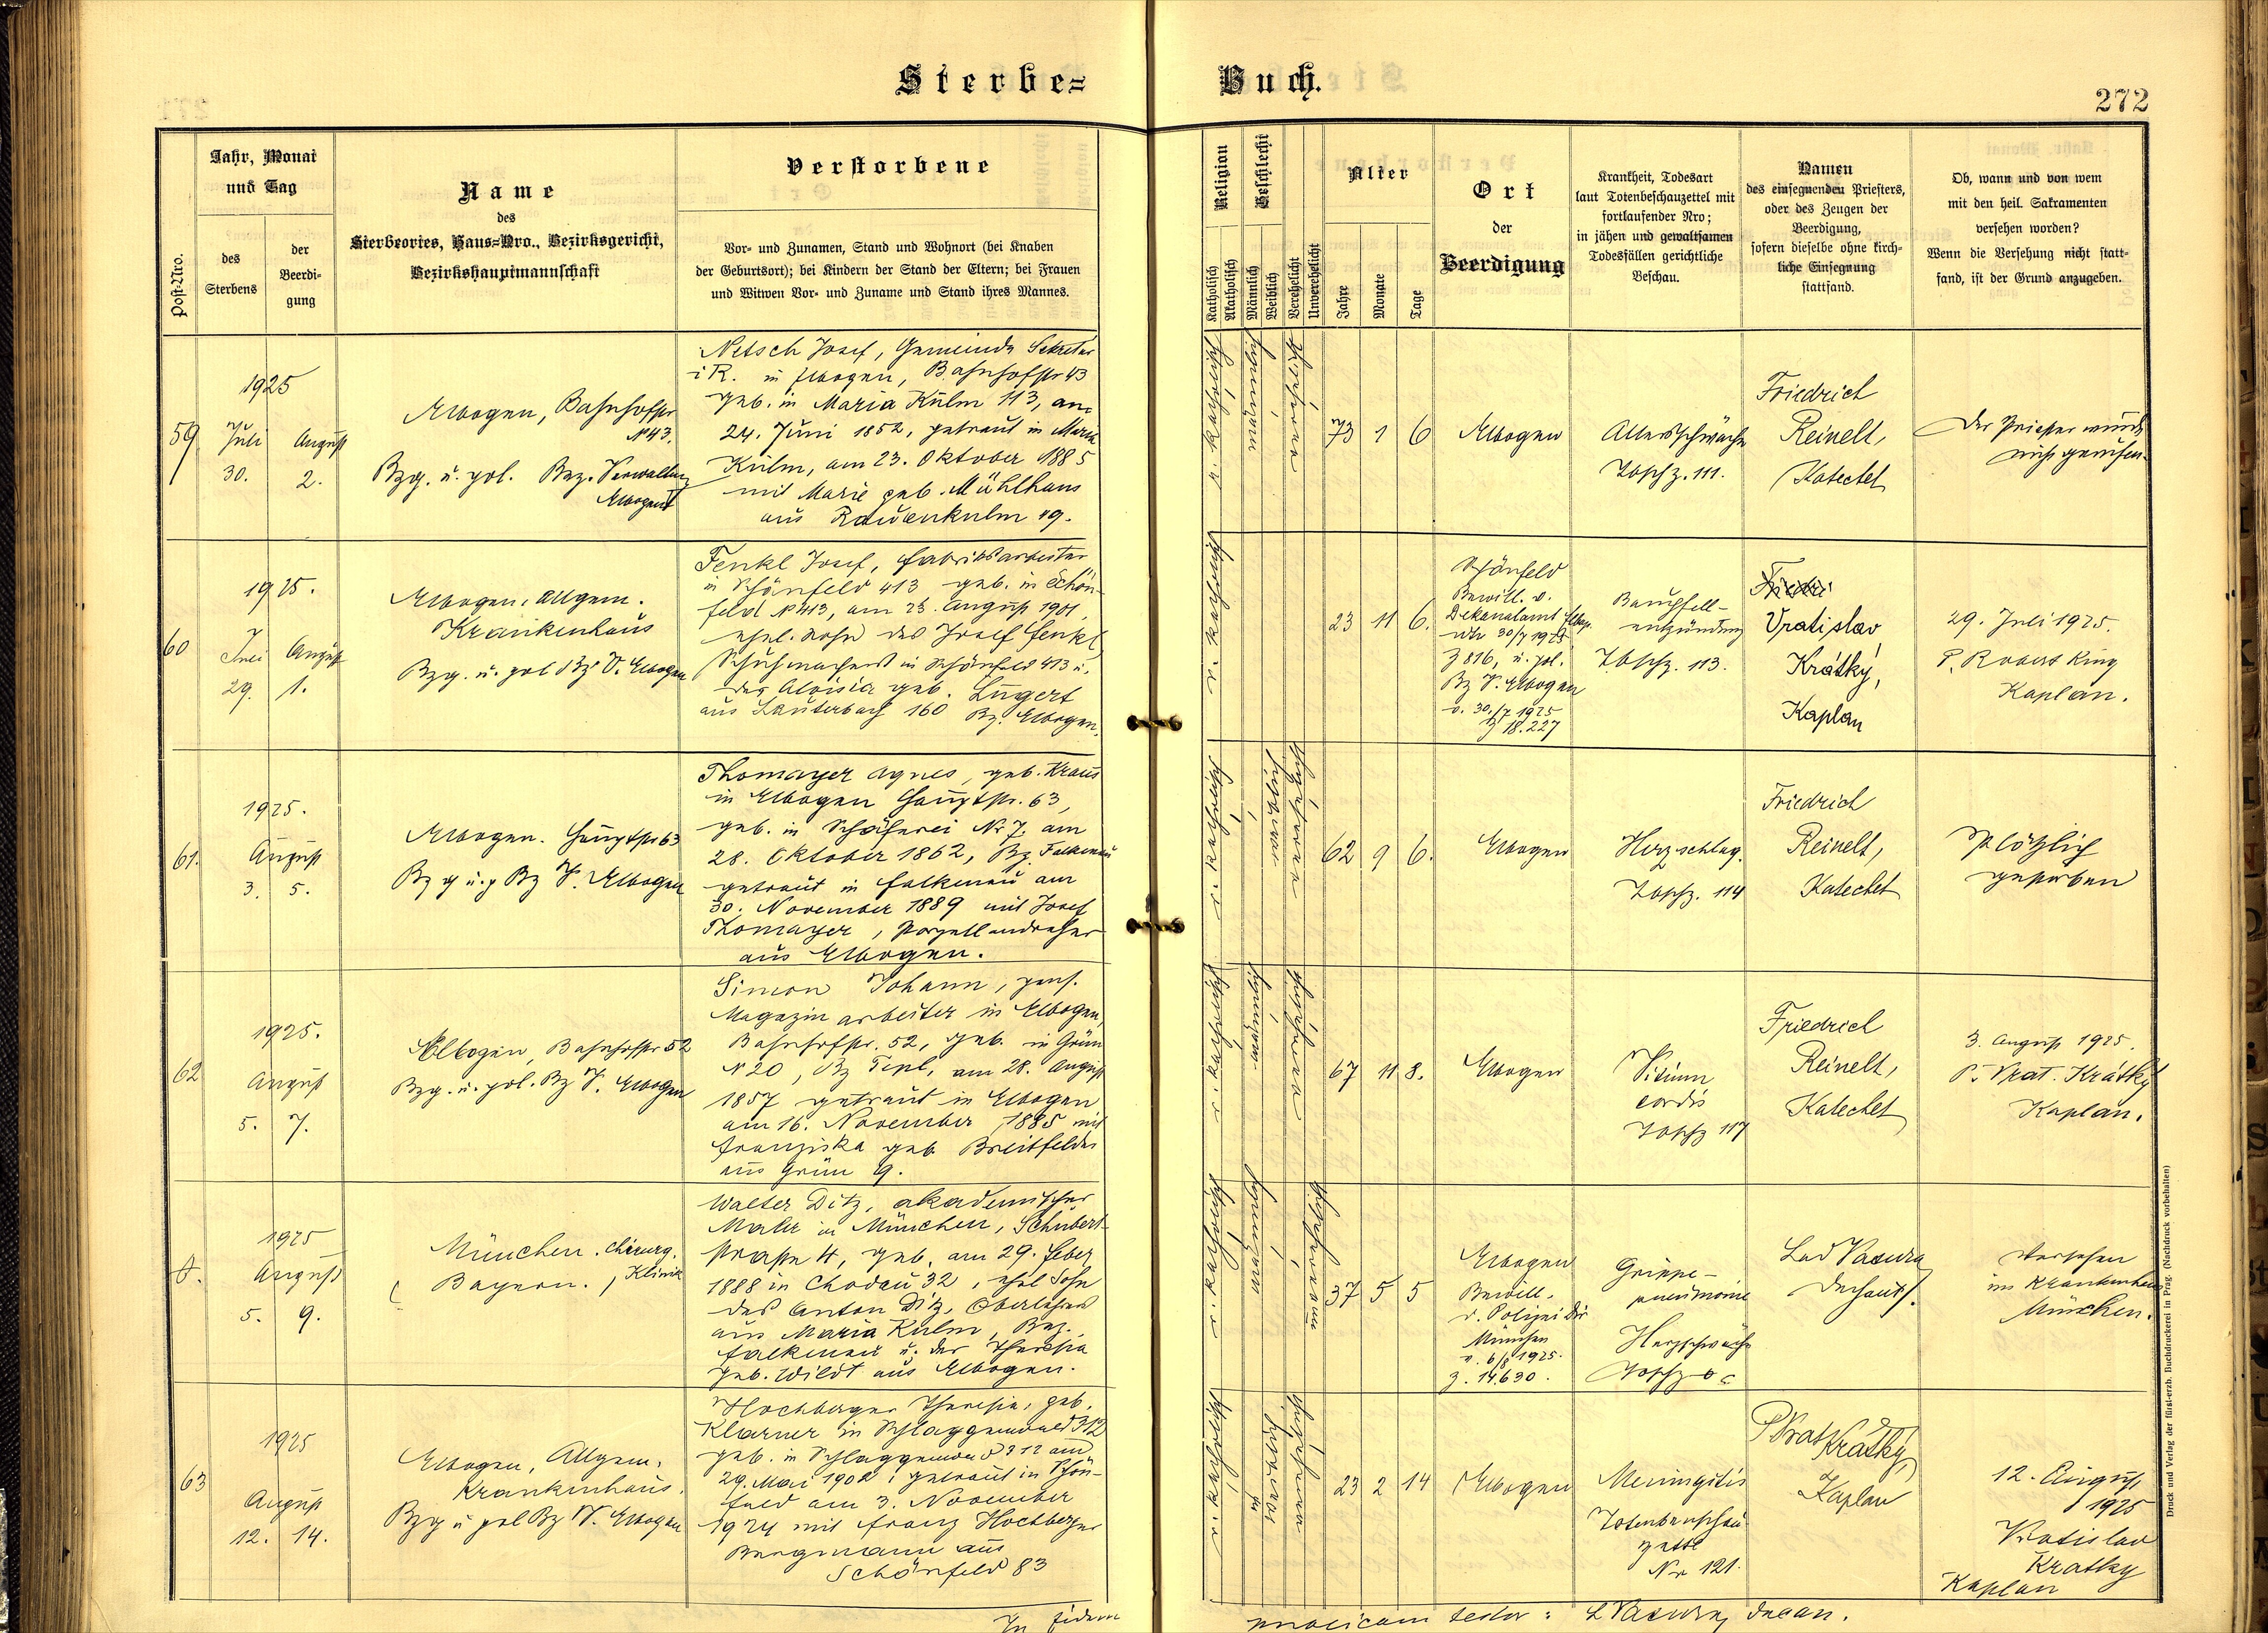 Sterbe=
Buch.
272
Post-Nro.
Jahr, Monat
und Tag
des
Sterbens
der
Beerdi-
gung
Name
des
Sterbeortes, Haus=Nro., Bezirksgericht,
Bezirkshauptmannschaft
Verstorbene
Vor- und Zunamen, Stand und Wohnort (bei Knaben
der Geburtsort); bei Kindern der Stand der Eltern; bei Frauen
und Witwen Vor- und Zuname und Stand ihres Mannes.
Religion
Katholisch
Akatholisch
Geschlecht
Männlich
Weiblich
Verehelicht
Unverehelicht
Alter
Jahre
Monate
Tage
Ort
der
Beerdigung
Krankheit, Todesart
laut Totenbeschauzettel mit
fortlaufender Nro;
in jähen und gewaltsamen
Todesfällen gerichtliche
Beschau.
Namen
des einsegnenden Priesters,
oder des Zeugen der
Beerdigung,
sofern dieselbe ohne kirch-
liche Einsegnung
stattfand.
Ob, wann und von wem
mit den heil. Sakramenten
versehen worden?
Wenn die Versehung nicht statt-
fand, ist der Grund anzugeben.
59
1925
Juli August
30. 2.
Elbogen, Bahnhofstr
No 43.
Bzg. u. pol. Bez. Verwaltung
Elbogen
Netsch Josef, Gemeinde Sekretär
i R. in Elbogen, Bahnhofstr 43
geb. in Maria Kulm 113, am
24. Juni 1852, getraut in Maria
Kulm, am 23. Oktober 1885
mit Marie geb. Mühlhans
aus Rauenkulm 19.
r. katholisch
männlich
verehelicht
73 1 6
Elbogen
Altersschwäche
Tbschz. 111.
Friedrich
Reinelt,
Katechet
Der Priester wurde
nicht gerufen.
60
1925.
Juli August
29. 1.
Elbogen, Allgem.
Krankenhaus
Bzg. u. pol Bz V. Elbogen
Fenkl Josef, Fabriksarbeiter
in Schönfeld 413 geb. in Schön-
feld No 413, am 23. August 1901,
ehel. Sohn des Josef Fenkl
Schuhmachers in Schönfeld 413 u.
der Aloisia geb. Lugert
aus Lauterbach 160 Bz. Elbogen.
r. katholisch
23 11 6.
Schönfeld
Bewill. d.
Dekanalamt Elbog.
30/7 1925
Z 816, u. pol.
Bz V. Elbogen
v. 30./7 1925
Z 18.227
Bauchfell-
entzündung
Tbschz. 113.
Vratislav
Krátký,
Kaplan
29. Juli 1925.
P. Robert King
Kaplan.
61.
1925.
August
3. 5.
Elbogen. Hauptstr 63
Bz g u. p Bz V. Elbogen
Thomayer Agnes, geb. Kraus
in Elbogen Hauptstr. 63,
geb. in Schäferei Nr 7. am
28. Oktober 1862, Bz. Falkenau
getraut in Falkenau am
30. November 1889 mit Josef
Thomayer, Porzellandreher
aus Elbogen.
r. katholisch
weiblich
verehelicht
62 9 6.
Elbogen
Herzschlag.
Tbschz. 114
Friedrich
Reinelt,
Katechet
Plötzlich
gestorben
62
1925.
August
5. 7.
Elbogen, Bahnhofstr 52
Bzg. u. pol. Bz V. Elbogen
Simon Johann, pens.
Magazinarbeiter in Elbogen,
Bahnhofstr. 52, geb. in Grün
No 20, Bz Tepl, am 28. August
1857 getraut in Elbogen
am 16. November 1885 mit
Franziska geb. Breitfelder
aus Grün 9.
r. katholisch
männlich
verehelicht
67 11 8.
Elbogen
Vitium
cordis
Tbschz 117
Friedrich
Reinelt,
Katechet
3. August 1925.
P. Vrat. Krátký
Kaplan.
1925
August
5. 9.
München. Chirurg.
Bayern. Klinik
Walter Ditz, akademischer
Maler in München, Schubert-
strasse 4, geb. am 29. Feber
1888 in Chodau 32, ehel Sohn
des Anton Ditz, Oberlehrers
aus Maria Kulm, Bez.
Falkenau u. der Theresia
geb. Wildt aus Elbogen.
r. katholisch
männlich
37 5 5
Elbogen
Bewill.
d. Polizei Dir
München
v. 6/8 1925.
Z. 14.630.
Grippe-
pneumonie
Herzschwäche
Lad Vaxura
Dechant.
Versehen
im Krankenhaus
München.
63
1925
August
12. 14.
Elbogen, Allgem.
Krankenhaus.
Bzg u pol Bz V. Elbogen
Hochberger Theresia, geb.
Klarner in Schlaggenwald 312
geb. in Schlaggenwald 312 am
29. Mai 1902 getraut in Schön-
feld am 3. November
1924 mit Franz Hochberger
Bergmann aus
Schönfeld 83
r. katholisch
weiblich
verehelicht
23 2 14
Elbogen
Meningitis
Totenbeschau
zettel
Nr 121.
P Vrat Krátký,
Kaplan
12. August
1925
Vratislav
Kratky
Kaplan
In fidem
publicam testor: L Vaxura, Decan.
Druck und Verlag der fürst-erzb. Buchdruckerei in Prag. (Nachdruck vorbehalten)